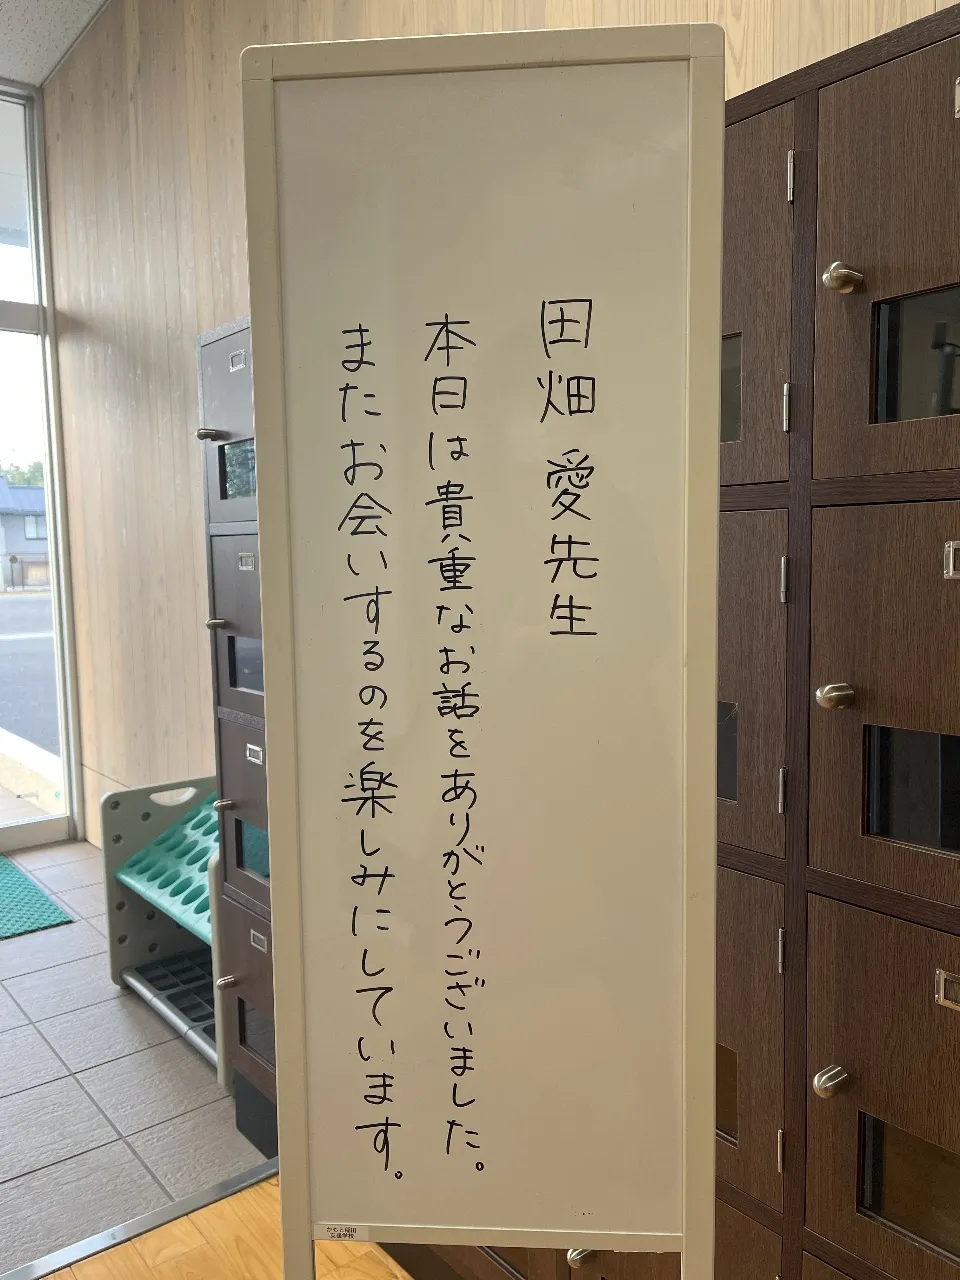 田畑 愛先生
本日は貴重なお話をありがとうございました。
またお会いするのを楽しみにしています。
かもと稲田
支援学校